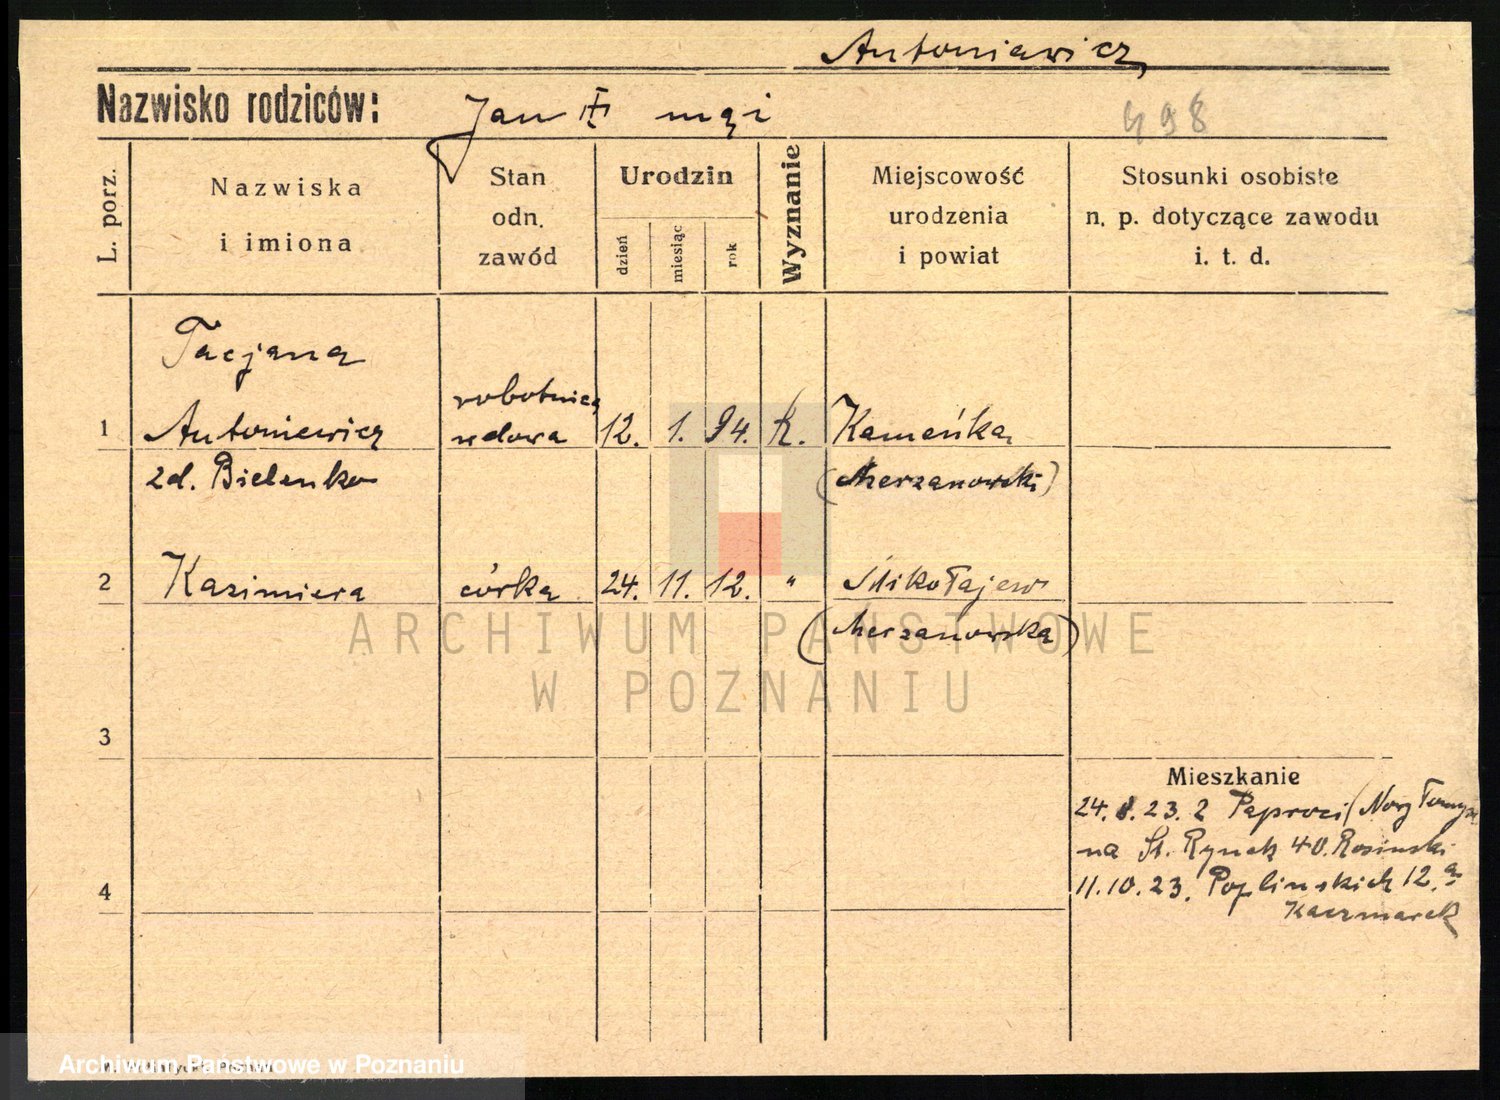 Antoniewicz
Nazwisko rodziców: Jan mąż
498
L. porz.
Nazwiska
i imiona
Stan
odn.
zawód
Urodzin
dzień
miesiąc
rok
Wyznanie
Miejscowość
urodzenia
i powiat
Stosunki osobiste
n. p. dotyczące zawodu
i. t. d.
Tacjana
robotnica
1 Antoniewicz wdowa 12. 1. 94. K. Kameńka
zd. Bielenko (Aterzanowski)
2 Kazimiera córka 24. 11. 12. " Mikołajew
3
4
Mieszkanie
24. 8. 23. z Paproci (Nowy Tomyśl
na St. Rynek 40. Rosinski
11.10.23. Poplinskich 12 a
Kaczmarek
ARCHIWUM PAŃSTWOWE
W POZNANIU
Archiwum Państwowe w Poznaniu